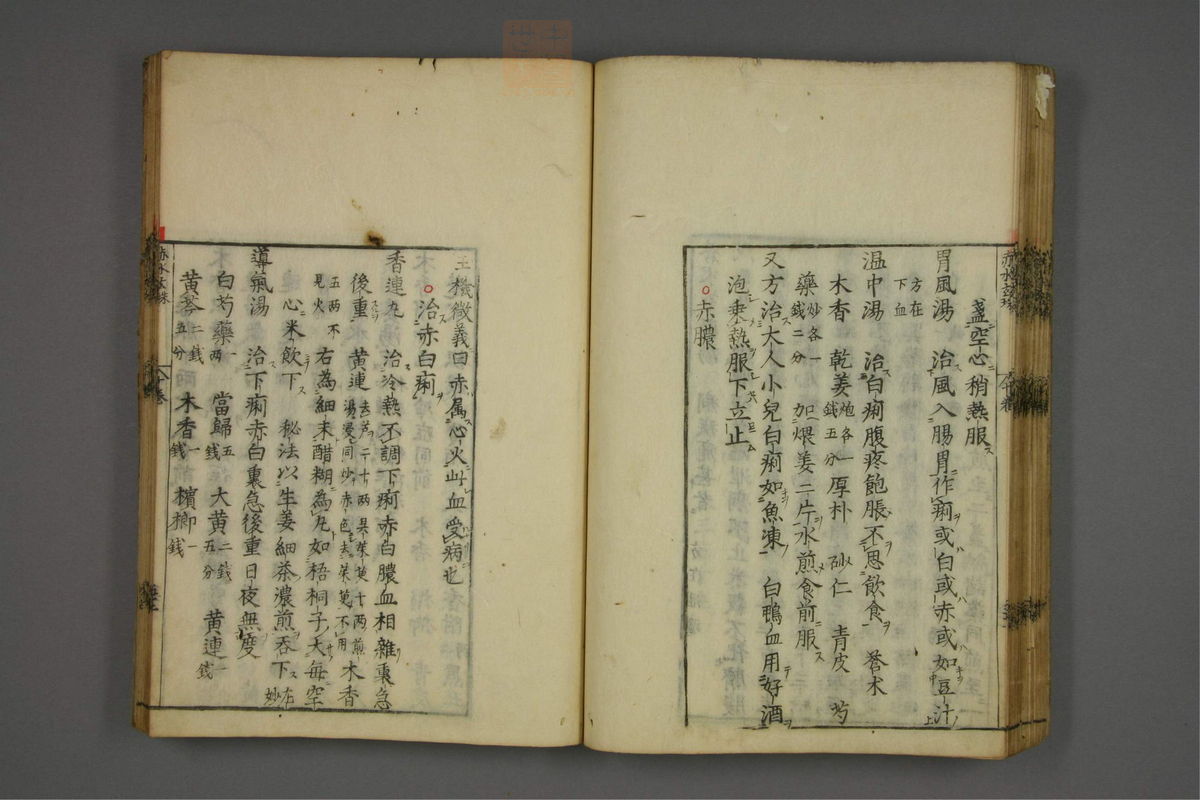 盞空心稍熱服
胃風湯 治風入腸胃作痢或白或赤或如豆汁
方在下血
温中湯 治白痢腹疼飽脹不思飲食 蒼朮
木香 乾姜炮各一錢五分 厚朴 砂仁 青皮 芍
藥炒各一錢二分 加煨姜二片水煎食前服
又方治大人小兒白痢如魚凍 白鴨血用好酒
泡乗熱服下立止
赤膿
玉機微義曰赤属心火此血受病也
治赤白痢
香連丸 治冷熱不調下痢赤白膿血相雜裏急
後重 黄連去芦二十兩吳茱萸十兩煎湯浸同炒赤色去茱萸不用 木香
五兩不見火 右為細末醋糊為丸如梧桐子大每空
心米飲下 秘法以生姜細茶濃煎吞下尤妙
導氣湯 治下痢赤白裏急後重日夜無度
白芍藥一兩 當歸五錢 大黄二錢五分 黄連一錢
黄芩二錢五分 木香一錢 檳榔一錢
赤水玄珠